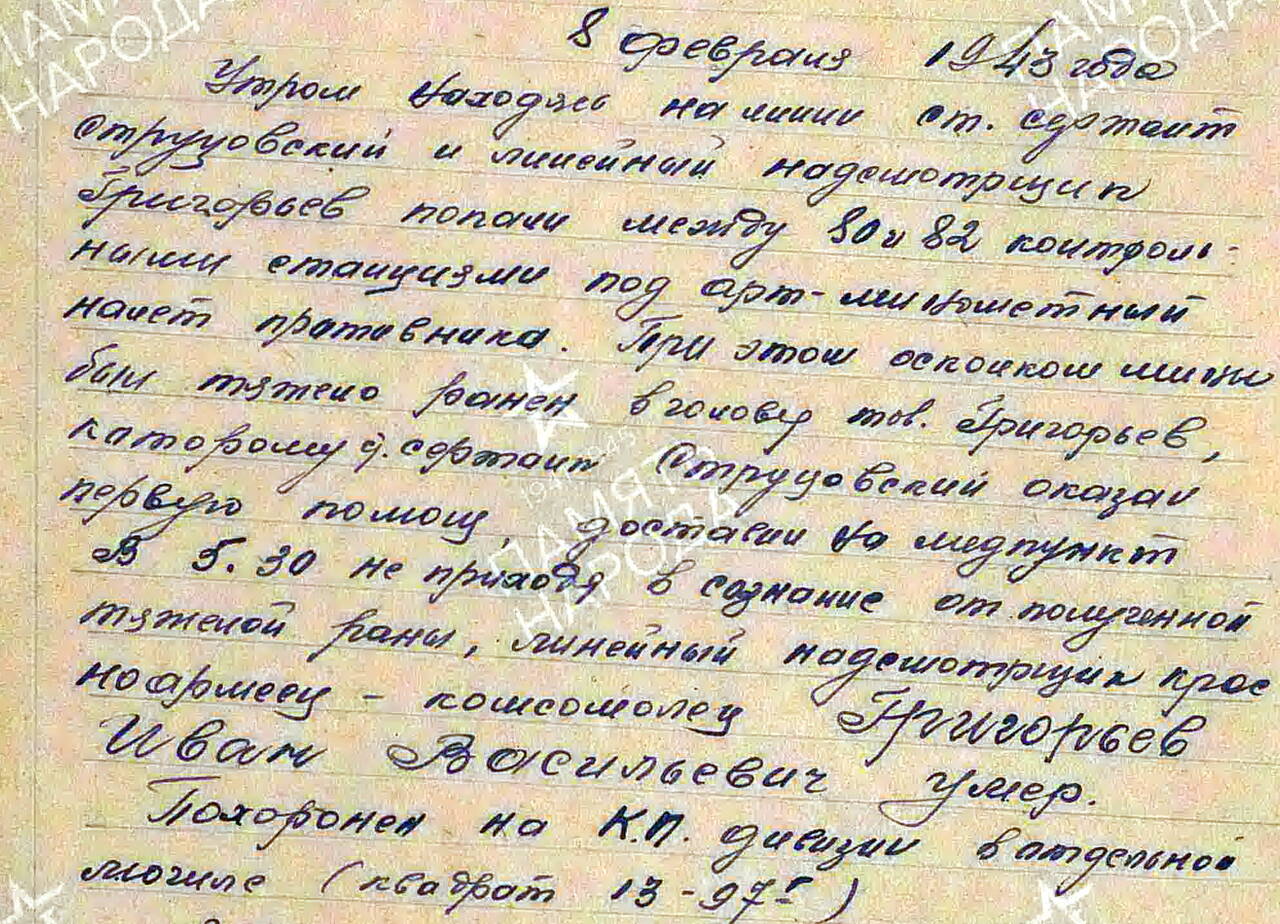 8 февраля 1943 года
Утром находясь на линии ст. сержант
Струцовский и линейный надсмотрщик
Григорьев попали между 80 и 82 контроль-
ными станциями под арт-минометный
налет противника. При этом осколком мины
был тяжело ранен в голову тов. Григорьев,
каторому ст. сержант Струцовский оказал
первую помощ, доставил на медпункт
В 5.30 не приходя в сознание от полученной
тяжелой раны, линейный надсмотрщик крас
ноармеец - комсомолец Григорьев
Иван Васильевич умер.
Похоронен на К.П. дивизии в атдельной
могиле (квадрат 13-97г)
ПАМЯТЬ
НАРОДА
1941-1945
ПАМЯТЬ
НАРОДА
ПАМЯТЬ
НАРОДА